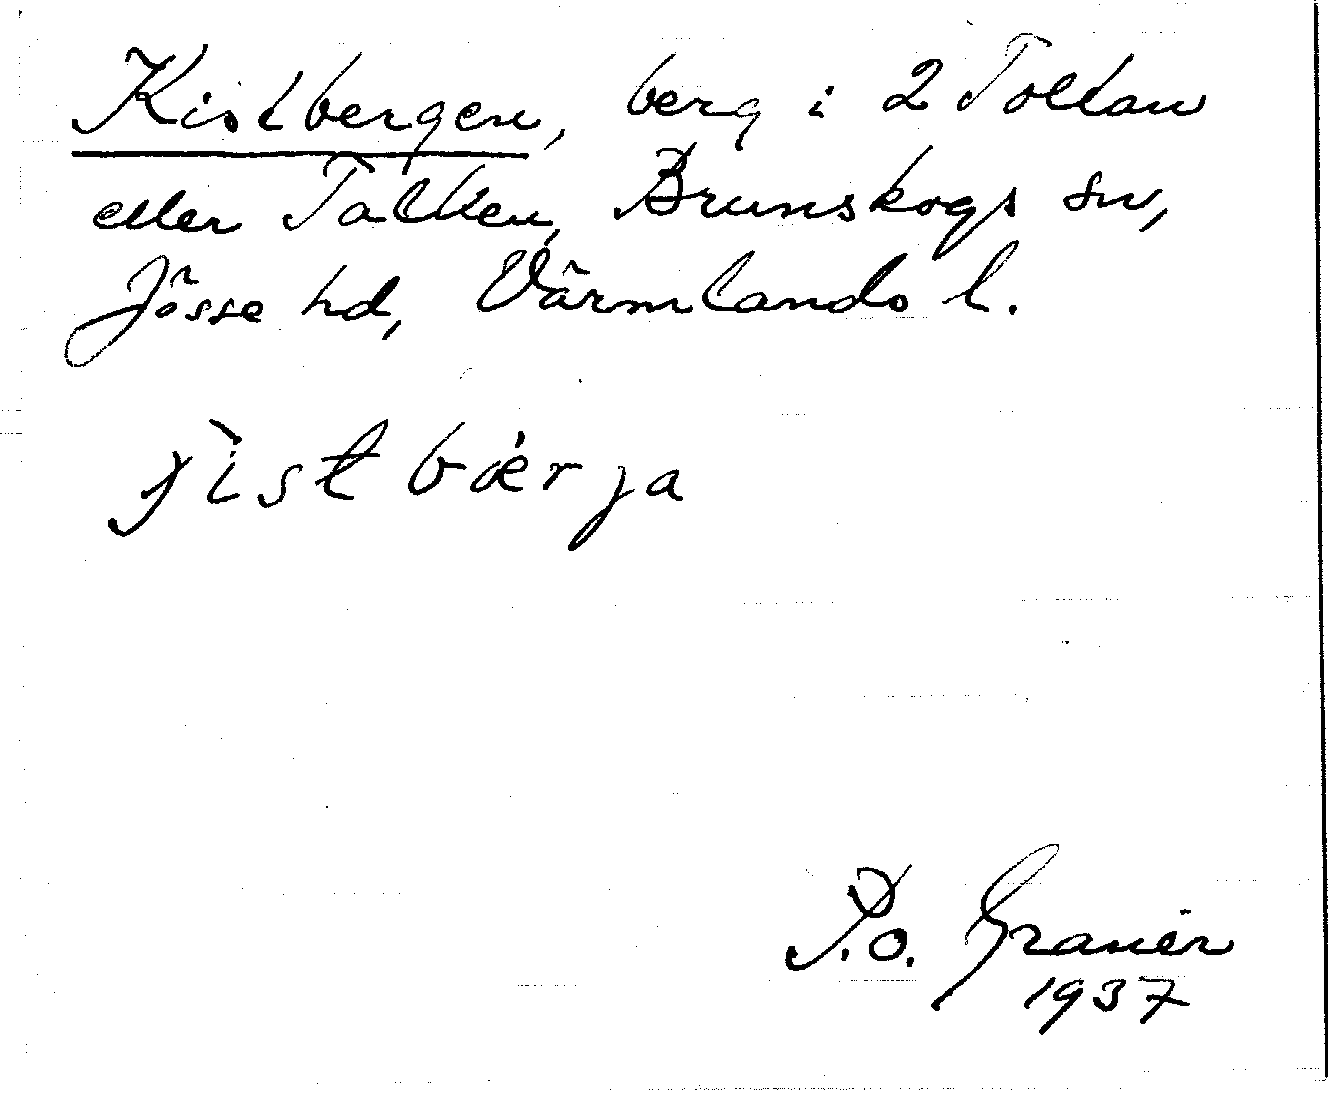 Kistbergen, berg i 2 Toltan
eller Tallten, Brunskogs sn,
Jösse hd, Värmlands l.
ɟìstbǽrja
P.O. Granér
1937